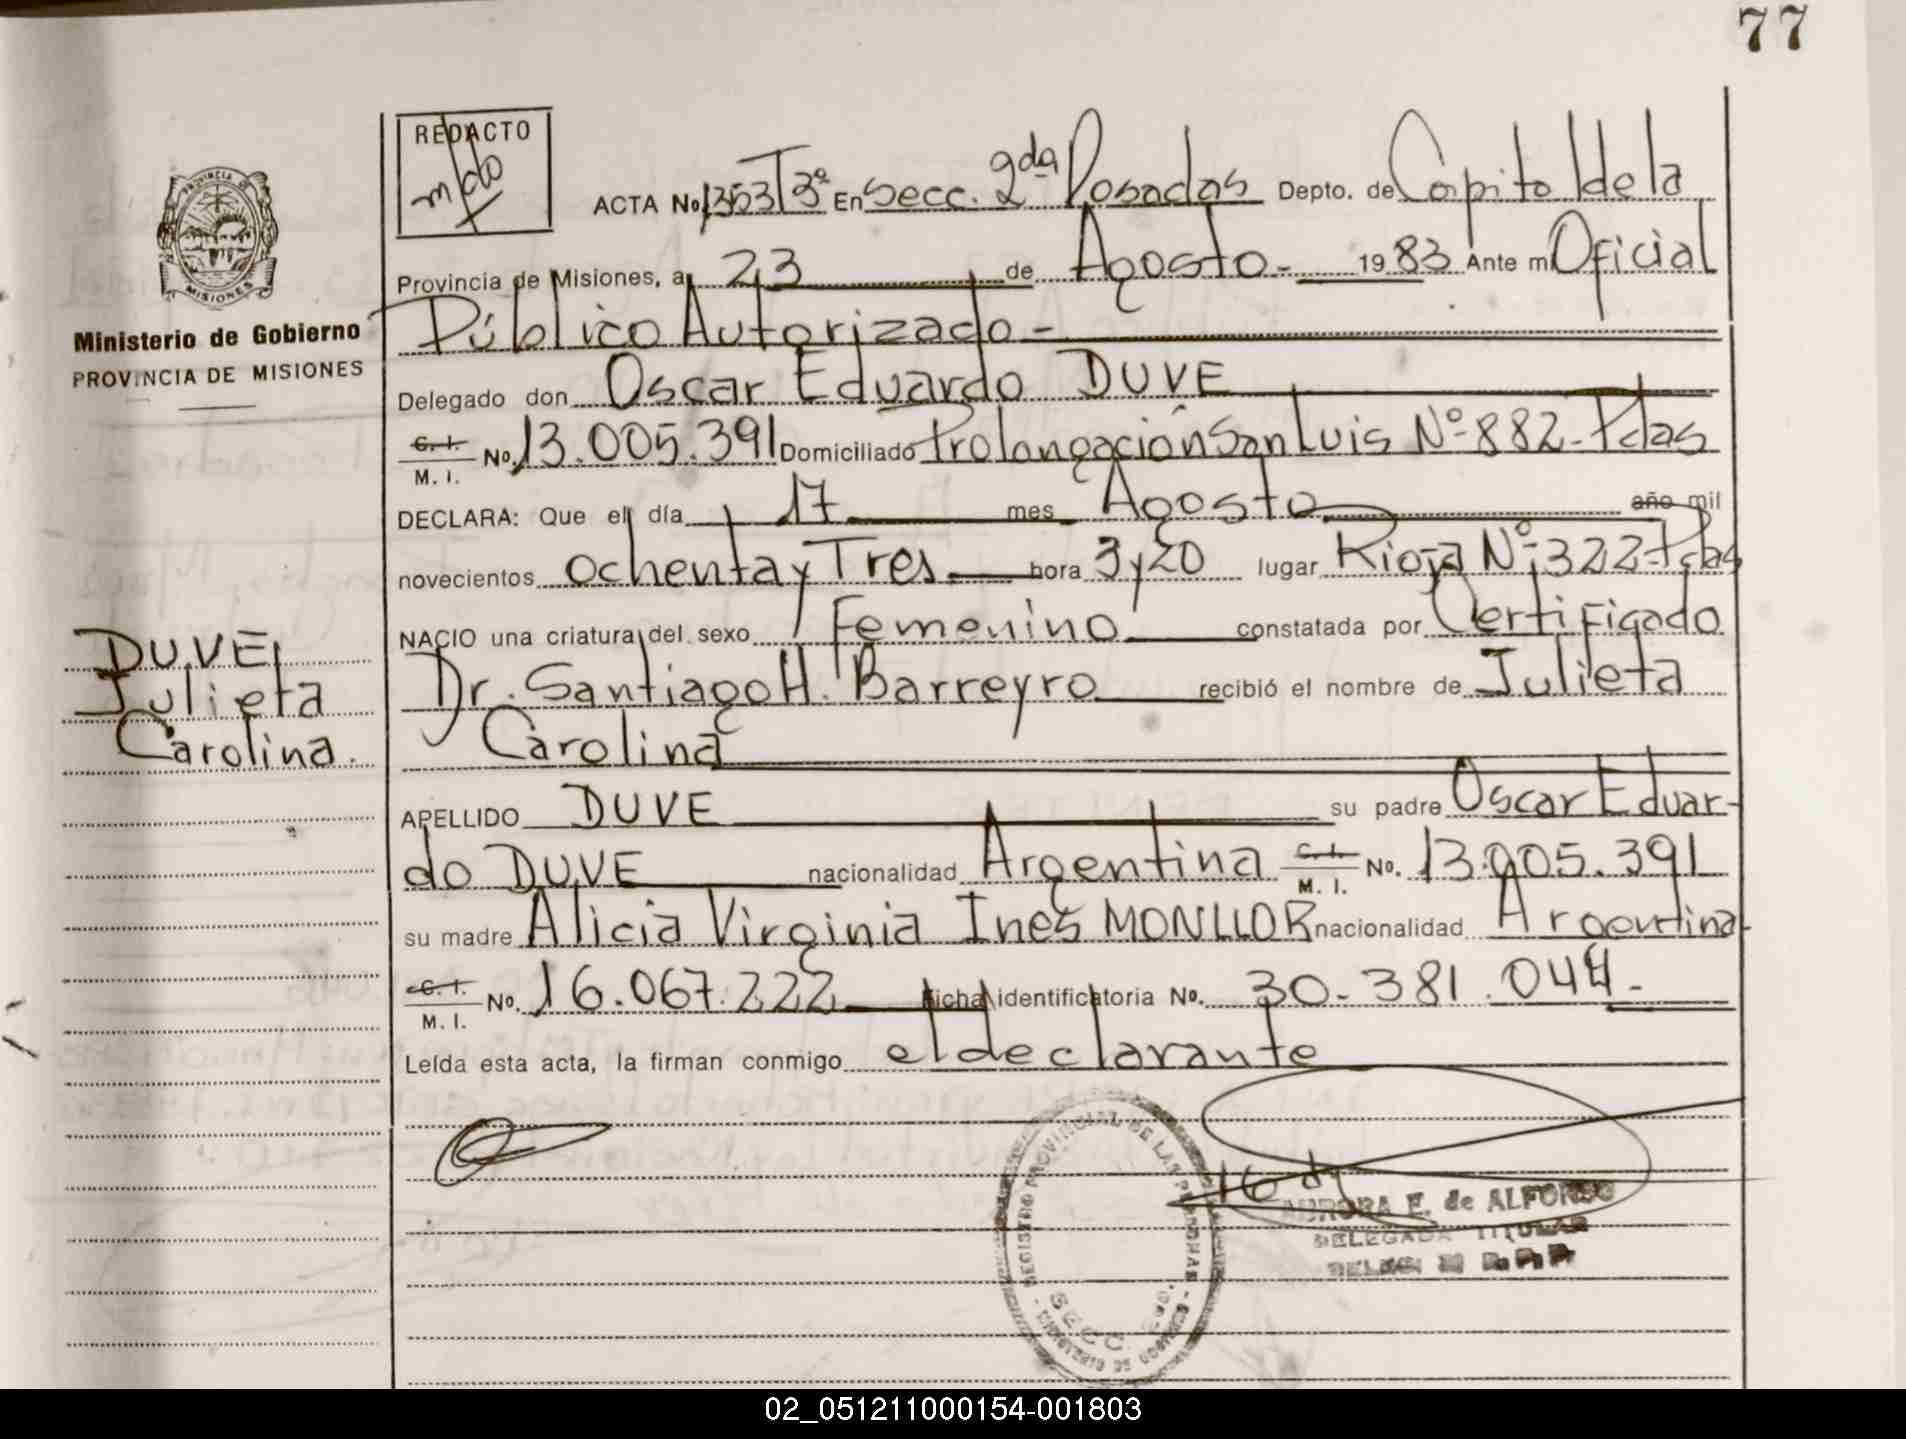 77
REDACTO
ACTA No 1353 T3º En Secc. 2da Posadas Depto. de Capital de la
PROVINCIA DE MISIONES
Provincia de Misiones, a 23 de Agosto - 1983 Ante mi Oficial
Público Autorizado -
Ministerio de Gobierno
PROVINCIA DE MISIONES
Delegado don Oscar Eduardo DUVE
C. I. M. I. No. 13.005.391 Domiciliado Prolongación San Luis Nº 882 - Pdas
DECLARA: Que el día 17 mes Agosto año mil
novecientos ochenta y Tres hora 3 y 20 lugar Rioja Nº 322 - Pdas
NACIO una criatura del sexo Femenino constatada por Certificado
Dr. Santiago H. Barreyro recibió el nombre de Julieta
Carolina
DUVE,
Julieta
Carolina.
APELLIDO DUVE su padre Oscar Eduar-
do DUVE nacionalidad Argentina C. I. M. I. No. 13.005.391
su madre Alicia Virginia Ines MONLLOR nacionalidad Argentina
C. I. M. I. No. 16.067.222 Ficha identificatoria No. 30-381.044-
Leída esta acta, la firman conmigo el declarante
REGISTRO PROVINCIAL DE LAS PERSONAS - MINISTERIO DE GOBIERNO -
SECC.
AURORA E. de ALFONSO
DELEGADA TITULAR
02_051211000154-001803